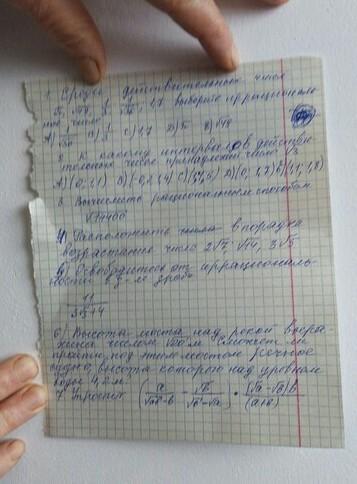 1. Среди действительных чисел
√5, √49, 1/3, 1/√16, 1,7 выберите иррациональ
ное число
С) 1,7 D) √5 Е) √49
2. К какому интервалов действи
тельных чисел принадлежит число √3
А) (0; 1,1) D) (0; 1,7) (1,1; 1,8)
3. Вычислите рациональным способом
4) Расположите числа в порядке
возрастание число 2√7, √14, 3√5
5) Освободитесь от иррациональ-
ности в дроби
11
3√3+4
6) Высота моста над рекой выра
жается числом м. Сможет ли
пройти под этим мостом речное
судно, высота которого над уровнем
воды 4,2 м.
7. Упростит (a/√ab-b - √b/√b-√a) · (√a-√b)b/(a+b)